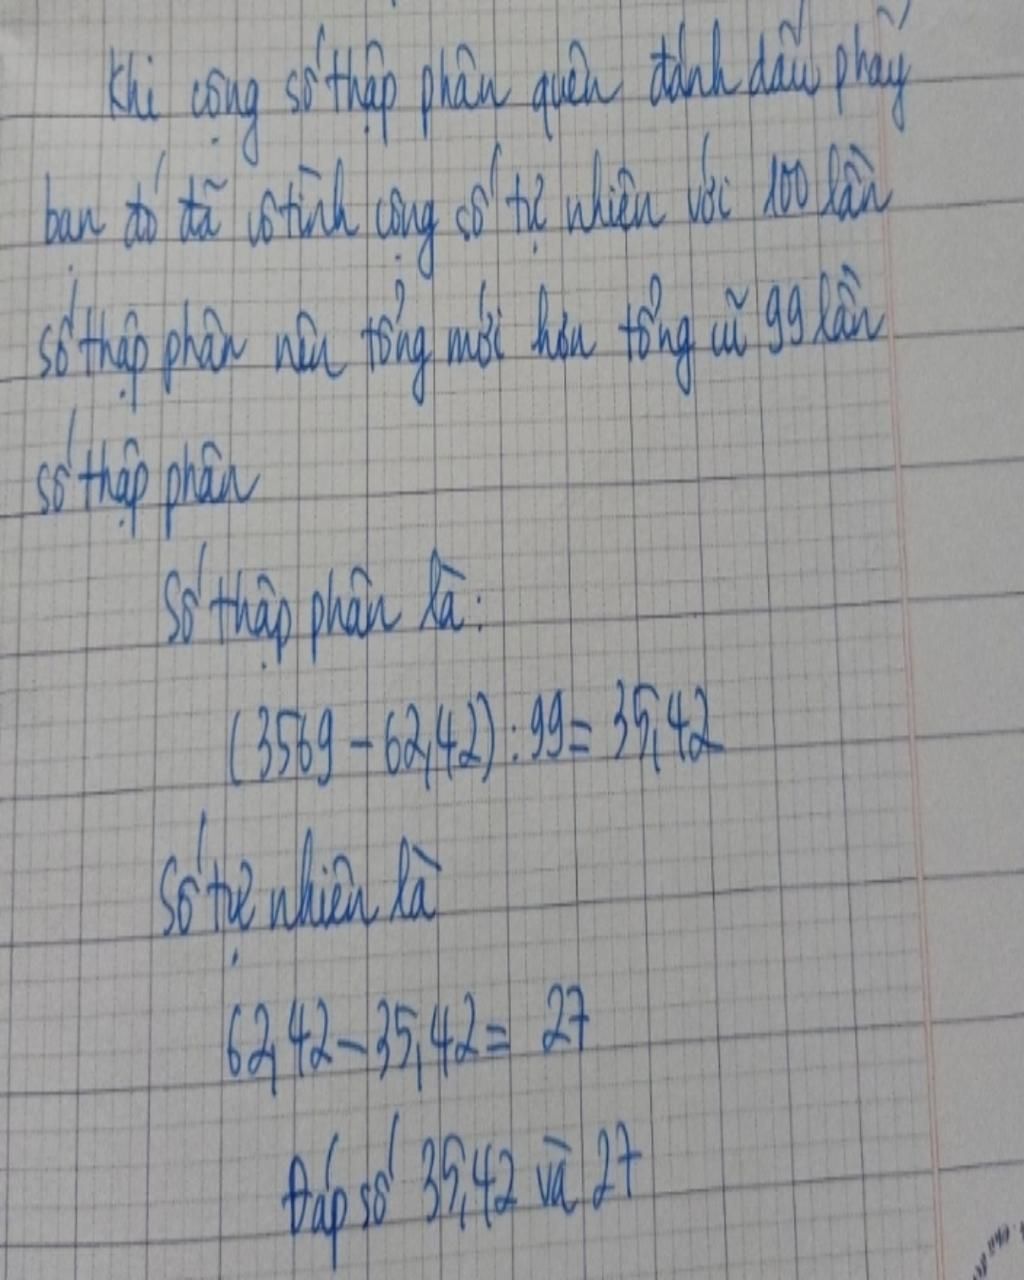 Khi cộng số thập phân quên đánh dấu phẩy
bạn đó đã vô tình cộng số tự nhiên với 100 lần
số thập phân nên tổng mới hơn tổng cũ 99 lần
số thập phân
Số thập phân là:
(3569 - 62,42) : 99 = 35,42
Số tự nhiên là
62,42 - 35,42 = 27
Đáp số 35,42 và 27